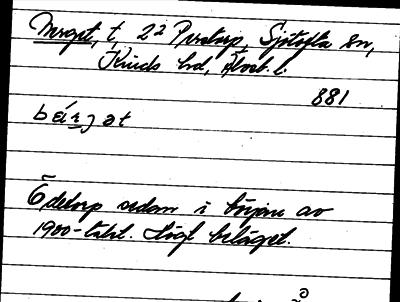 Berget, t, 2² Prstorp, Sjötofta sn,
Kinds hd, Älvsb. l.
881
Ödetorp sedan i början av
1900-talet. Högt beläget.